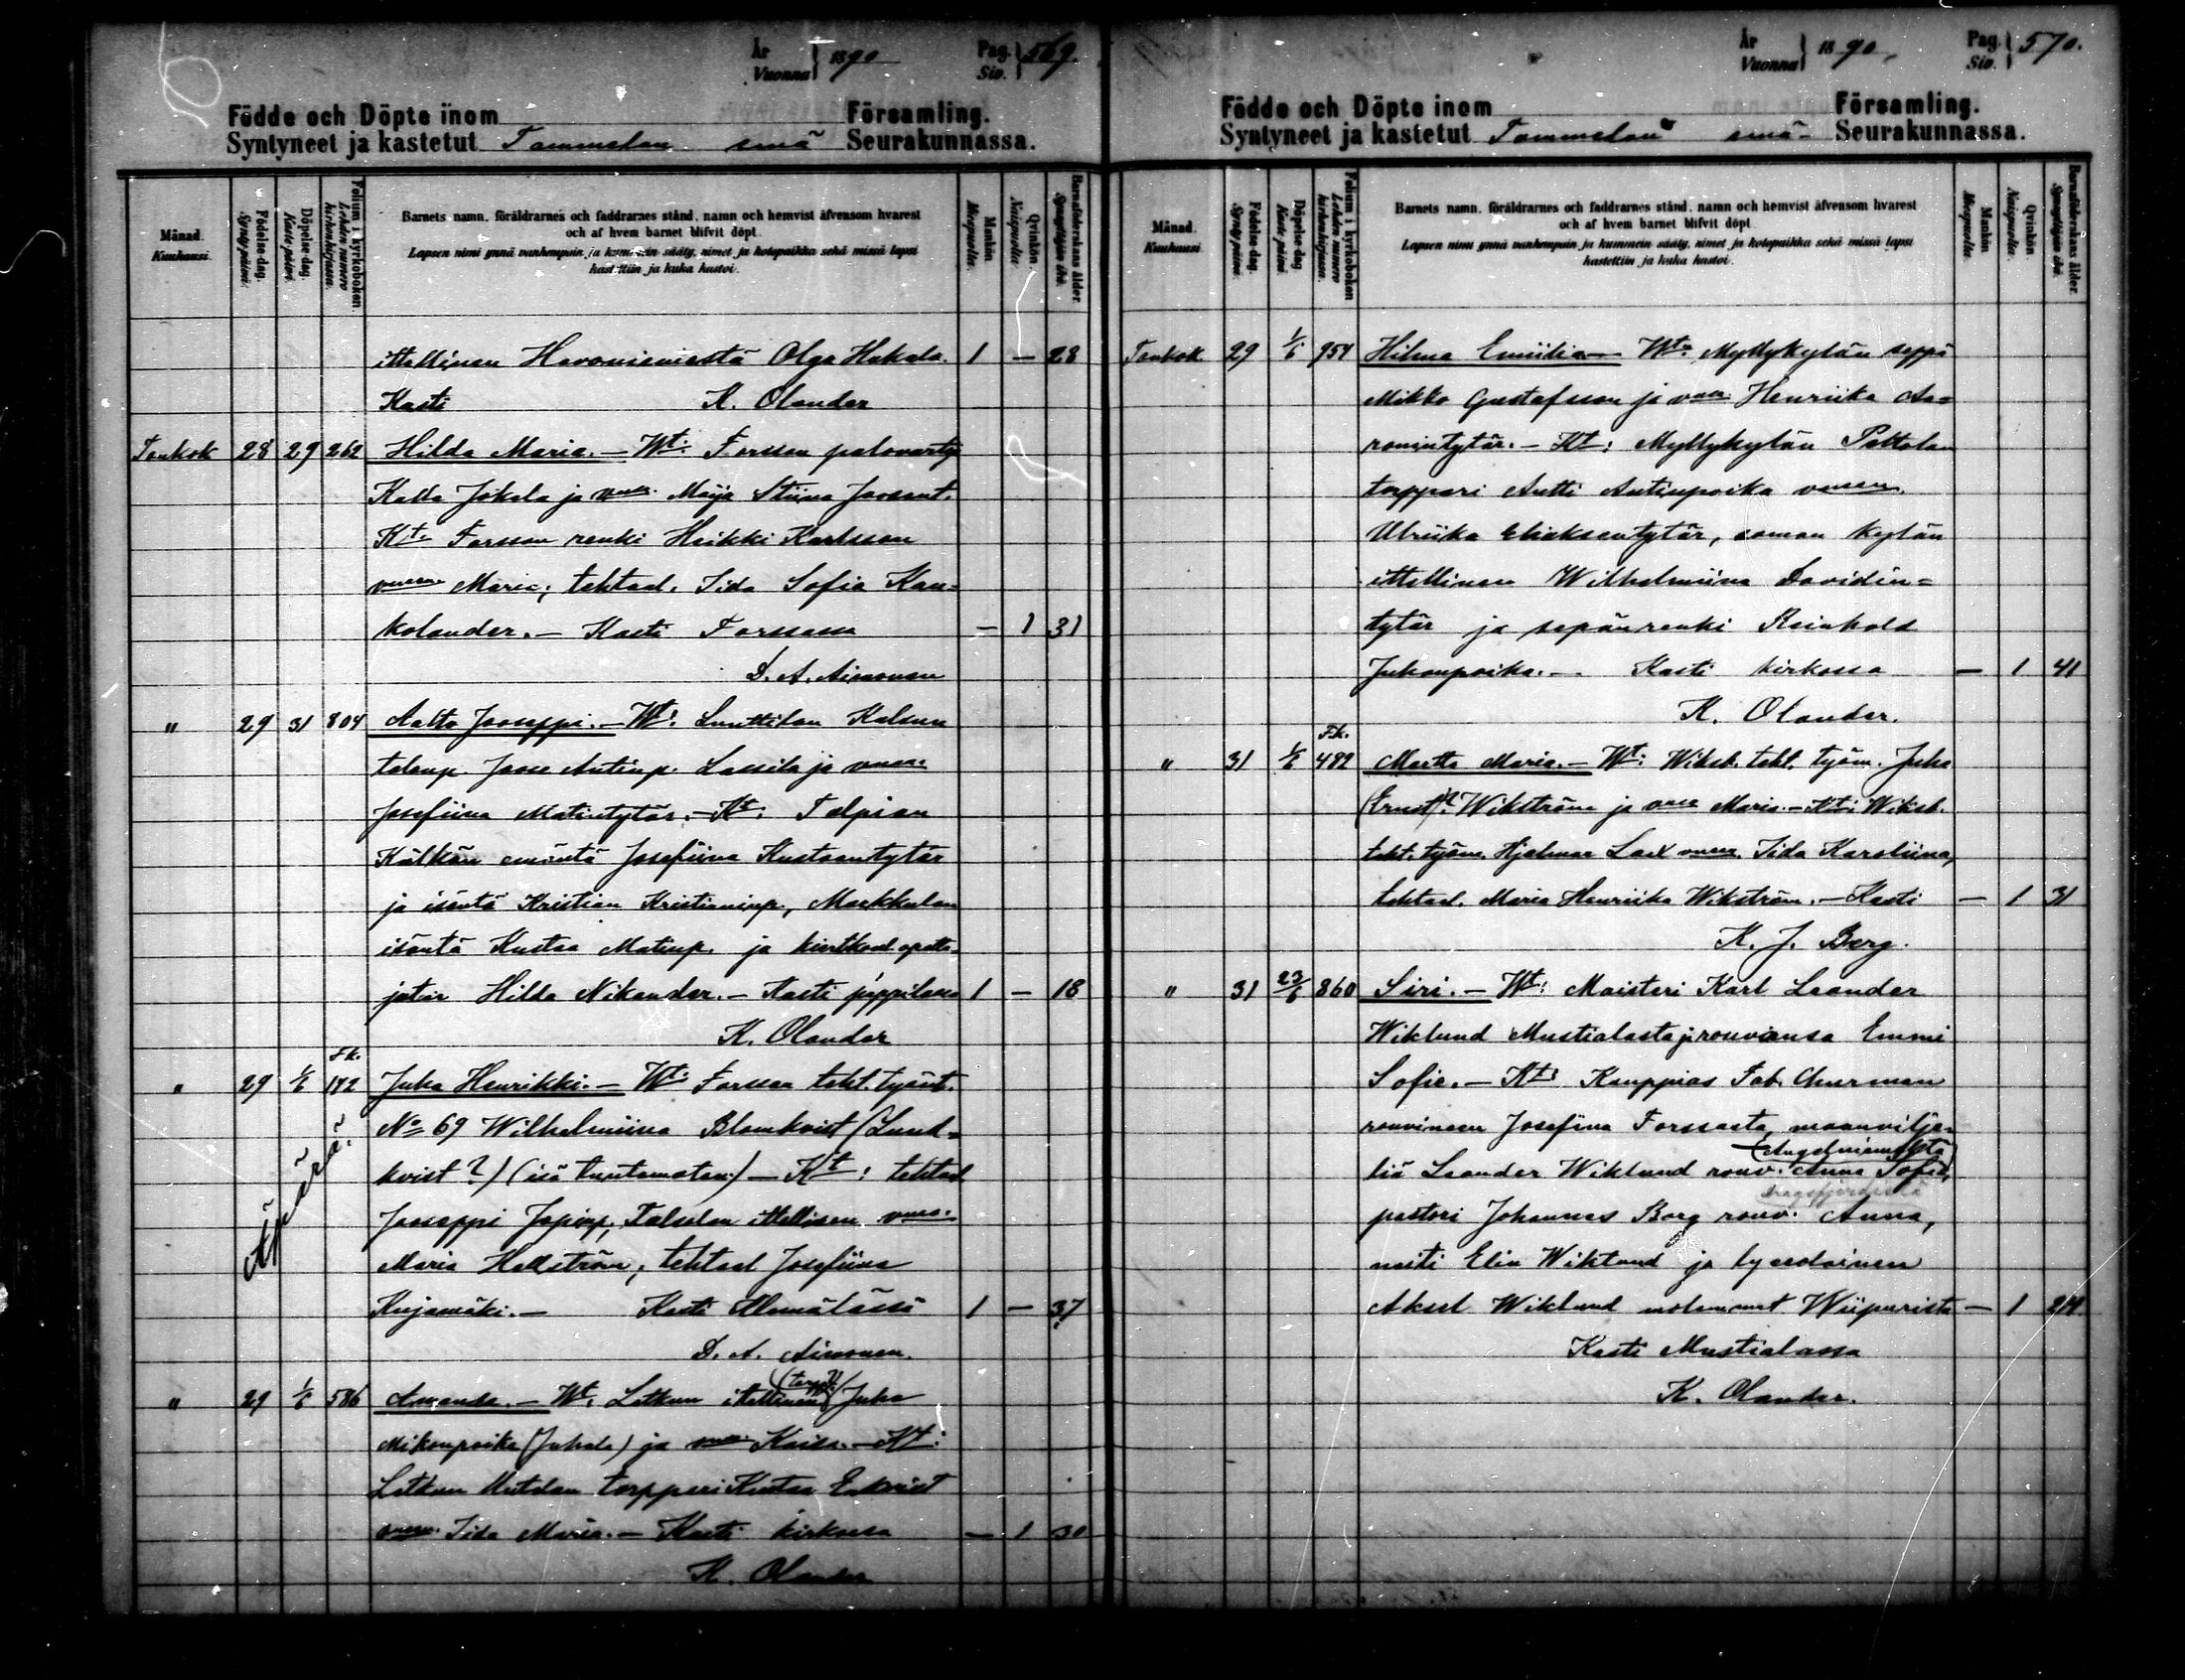 År
Vuonna } 1890
Pag.
Siv. } 569.
Födde och Döpte inom Församling.
Syntyneet ja kastetut Tammelan emä Seurakunnassa.
Månad. Kuukausi.
Födelse-dag. Synty päivä.
Döpelse-dag. Kaste päivä.
Folium i kyrkoboken Lehden numero kirkonkirjassa.
Barnets namn, föräldrarnes och faddrarnes stånd, namn och hemvist äfvensom hvarest
och af hvem barnet blifvit döpt.
Lapsen nimi ynnä vanhempain ja kummein sääty, nimet ja kotopaikka sekä missä lapsi
kastettiin ja kuka kastoi.
Mankön Miespuolia.
Qvinkön Naispuolia.
Barnaföderskans ålder. Synnyttäjän ikä.
itellinen Havoniemestä Olga Hakala. 1 — 28
Kasti K. Olander
Toukok 28 29 262 Hilda Maria. — Wt: Forssan palovartija
Kalle Jokela ja vmo. Maija Stiina Joosent.
Kt: Forssan renki Heikki Karlsson
vmonsa Maria; tehtaal. Iida Sofia Kau-
kolander. — Kasti Forssassa — 1 31
D. A. Aimonen
" 29 31 804 Aatto Jooseppi. — Wt: Sunttilan Kalsun
talonp. Joose Antinp. Lassila ja vmo.
Josefiina Matintytär. — Kt: Talpian
Kälkän emäntä Josefiina Kustaantytär
ja isäntä Kristian Kristianinp., Markkulan
isäntä Kustaa Matinp. ja kiertkoul.opetta-
jatar Hilda Nikander. — Kasti pappilassa 1 — 18
K. Olander
F.k.
" 29 1/6 142 Juha Henrikki. — Wt: Forssan teht. työnt.
No 69 Wilhelmiina Blomkvist (Lund-
kvist?) (isä tuntematon) — Kt: tehtaal
Jooseppi Jopinp., Talsolan itellisen vmo.
Maria Hellström, tehtaal Josefiina
Kujamäki. — Kasti 1 — 37
Äpärä
D. A. Aimonen.
(torpp?)
" 29 1/6 586 Amanda. — Wt: Letkun itellinen Juha
Mikonpoika (Juhala) ja vmo. Kaisa. — Kt:
Letkun torppari Kustaa Enkvist
vmonsa. Iida Maria. — Kasti kirkossa — 1 30
K. Olander
År
Vuonna } 1890.
Pag.
Siv. } 570.
Födde och Döpte inom Församling.
Syntyneet ja kastetut Tammelan emä- Seurakunnassa.
Månad. Kuukausi.
Födelse-dag. Synty päivä.
Döpelse-dag. Kaste päivä.
Folium i kyrkoboken Lehden numero kirkonkirjassa.
Barnets namn, föräldrarnes och faddrarnes stånd, namn och hemvist äfvensom hvarest
och af hvem barnet blifvit döpt.
Lapsen nimi ynnä vanhempain ja kummein sääty, nimet ja kotopaikka sekä missä lapsi
kastettiin ja kuka kastoi.
Mankön Miespuolia.
Qvinkön Naispuolia.
Barnaföderskans ålder. Synnyttäjän ikä.
Toukok 29 1/6 954 Hilma Emiilia — Wt: Myllykylän seppä
Mikko Gustafsson ja vmo Henriika Aa-
ronintytär. — Kt: Myllykylän Pottolan
torppari Antti Antinpoika vmon.
Ulriika Eliaksentytär, saman kylän
itellinen Wilhelmiina Davidin-
tytär ja sepänrenki Reinhold
Juhonpoika. — Kasti kirkossa — 1 41
K. Olander.
F.k.
" 31 1/6 482 Martta Maria. — Wt: Wiksb. teht. työm. Juha
(Ernst)? Wikström ja vmo Maria. — Kt: Wiksb.
teht. työm. Hjalmar Lax vmon. Iida Karoliina,
tehtaal. Maria Henriika Wikström. — Kasti — 1 31
K. J. Berg.
" 31 23/6 860 Siri. — Wt: Maisteri Karl Leander
Wiklund Mustialasta ja rouvansa Emmi
Sofie. — Kt: Kauppias Fab. Churman
rouvineen Josefina Forssasta, maanvilje-
(Angelniemeltä)
liä Leander Wiklund rouv. Anna Sofia,
Dragsfjärdistä
pastori Johannes Borg rouv. Anna,
neiti Elin Wiklund ja lyseolainen
Aksel Wiklund molemmat Wiipurista — 1 24.
Kasti Mustialassa
K. Olander.